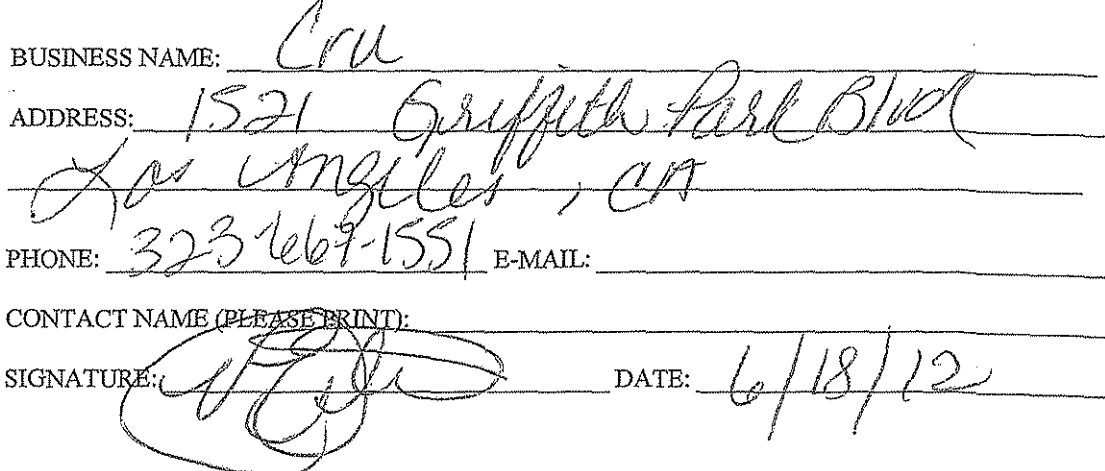 BUSINESS NAME: Cru
ADDRESS: 1521 Griffith Park Blvd
Los Angeles, CA
PHONE: 323-669-1551 E-MAIL:
CONTACT NAME (PLEASE PRINT):
SIGNATURE: DATE: 6/18/12